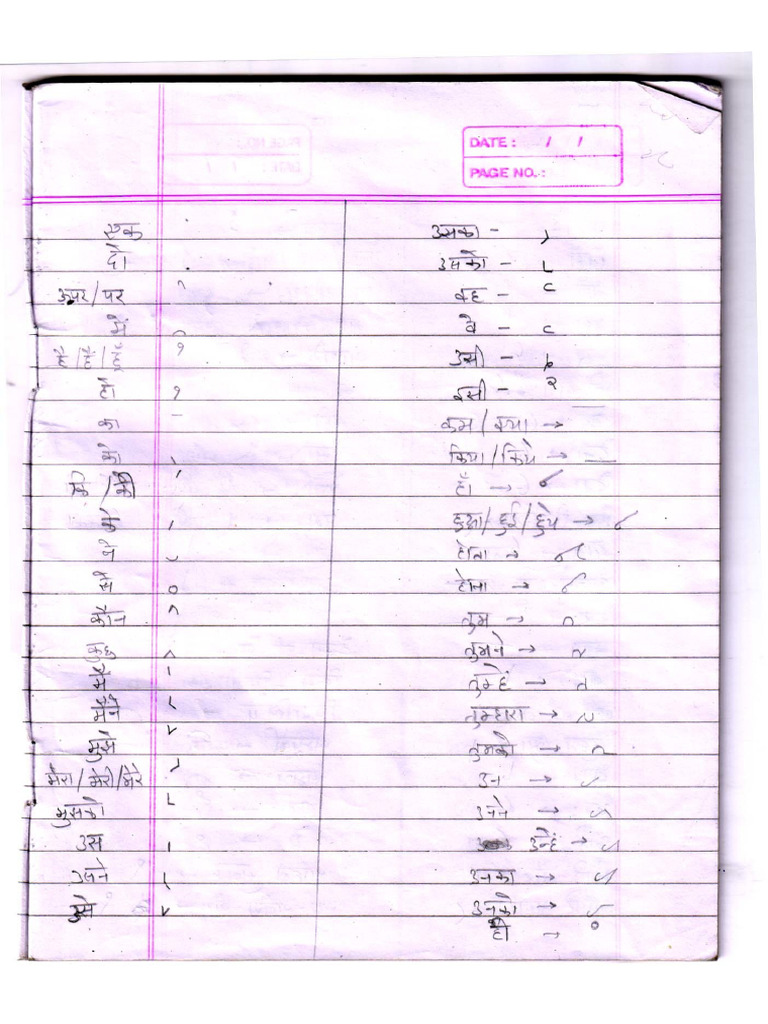 DATE : / /
PAGE NO. :
एक
दो
ऊपर/पर
में
है/हैं/
हो
का
को
कि/की
के
ने
से
कौन
कुछ
मैं
मैंने
मुझे
मेरा/मेरी/मेरे
मुझको
उस
उसने
उसे
उसका -
उसको -
वह -
वे -
उसी -
इसी -
कम/क्या →
किया/किये →
हाँ →
हुआ/हुई/हुये →
होता →
होना →
तुम →
तुमने →
तुम्हें →
तुम्हारा →
तुमको →
उन →
उनने →
उन्हें →
उनका →
उनको →
ही →